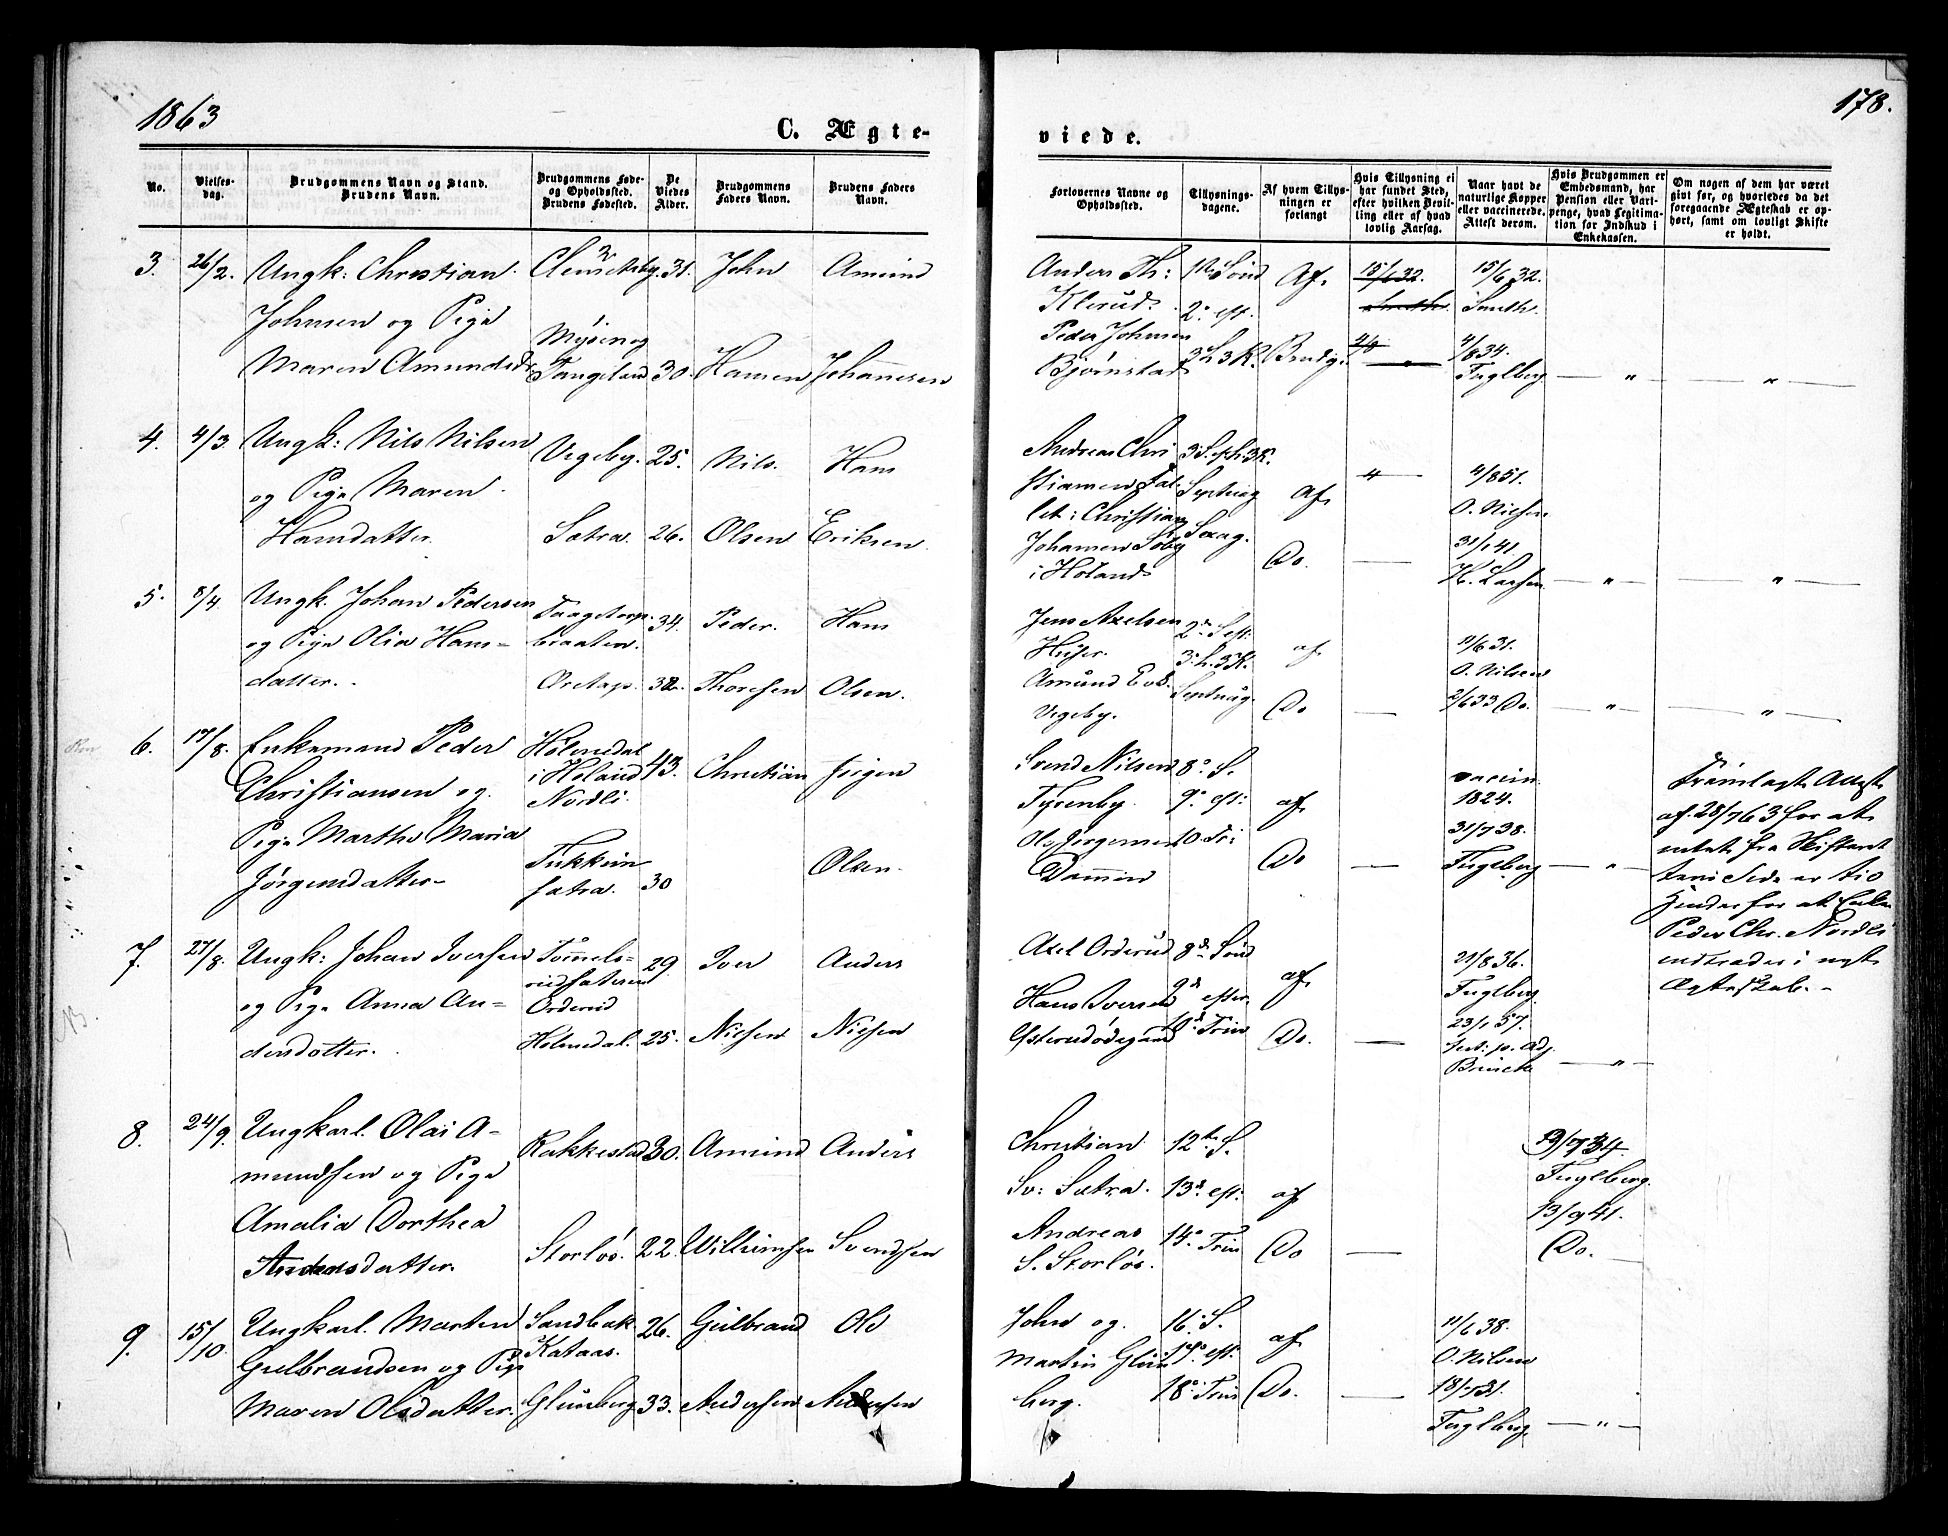 1863
178.
C. Ægte-
viede.
No.
Vielses-
dag.
Brudgommens Navn og Stand.
Brudens Navn.
Brudgommens Føde-
og Opholdssted.
Brudens Fødested.
De
Viedes
Alder.
Brudgommens
Faders Navn.
Brudens Faders
Navn.
Forlovernes Navne og
Opholdssted.
Tillysnings-
dagene.
Af hvem Tillys-
ningen er
forlangt
Hvis Tillysning ei
har fundet Sted,
efter hvilken Bevil-
ling eller af hvad
lovlig Aarsag.
Naar havt de
naturlige Kopper
eller vaccinerede.
Attest derom.
Hvis Brudgommen er
Embedsmand, har
Pension eller Vart-
penge, hvad Legitima-
tion for Indskud i
Enkekassen.
Om nogen af dem har været
gift før, og hvorledes da det
foregaaende Ægteskab er op-
hørt, samt om lovligt Skifte
er holdt.
3. 26/2. Ungk: Christian 31. John Amund
Johnsen og Pige
Maren Amundsd.
Mysen og
Tangeland 30. Hansen Johannesen
Anders Th:
Klerud.
Peder Johnsen
Bjørnstad
2. eft.
3 h. 3 K.
Af
Brudg.
15/6 32.
Smith
15/6 32.
Smith.
4/8 34.
Fuglberg — " — — " —
4. 4/3. Ungk: Nils Nilsen Vegeby. 25. Nils. Hans
og Pige Maren
Hansdatter. Sætra. 26. Olsen Eriksen.
Andreas Chri
stiansen
let: Christian
Johansen
i Høland
Septuag
af
Do. —
4/8 51.
O. Nilsen
31/1 41.
H. Larsen — " — — " —
5. 8/4. Ungk. Johan Pedersen 34. Peder. Hans
og Pige Olia Hans-
datter.
braaten.
32. Thoresen Olsen.
Jens Axelsen
Huser.
Amund
Vegeby.
2. S. eft.
3. h. 3 K.
Septuag.
af
Do —
11/6 31.
O. Nilsen
2/6 33 Do. — " — — " —
6. 17/8. Enkemand Peder
Christiansen og
Pige Marthe Maria
Jørgensdatter
Holmedal
i Høland
Nordli. 43. Christian Jørgen
sætra. 30 Olsen.
Svend Nilsen
Ole Jørgensen
8. S.
9. eft:
10. Tri
af
Do —
vaccin.
1824.
31/7 38.
Fuglberg — " —
Fremlagt Attest
af 28/7 63 for at
intet fra Skifteret
tens Side er til
Hinder for at Enkem
Peder Chr. Nordli
indtræder i nyt
Ægteskab. -
7. 27/8. Ungk: Johan Iversen Tommels=
rudsæteren
Orderud 29 Iver Anders
og Pige Anna An=
dersdatter. Holmedal. 25. Nilsen Nilsen
Axel Orderud
Hans Iversen
Østerudødegaard
8de Sønd
9de efter
10de Trin
af
Do. —
21/8 36.
Fuglberg
23/1 57.
Brinch — " —
8. 24/9. Ungkarl. Olai A-
mundsen og Pige
Amalia Dorthea
Andersdatter.
Rakkestad 30. Amund Anders
Storløs. 22. Willumsen Svendsen
Christian
Sv: Sætra.
Andreas
S. Storløs.
12te S.
13d. eft.
14. Trin
af
Do —
19/7 34
Fuglberg.
13/9 41.
Do.
9. 15/10. Ungkarl. Morten Sandbak
Kataas. 26. Gulbrand Ole
Gulbrandsen og Pige
Maren Olsdatter. Glimberg 33. Andersen Andersen
John og
Martin Glim
berg.
16. S.
17. eft.
18. Trin
af
Do. —
11/6 38.
O. Nilsen
Fuglberg — " —